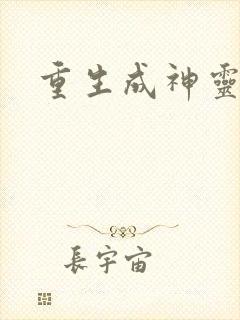 重生成神靈
長宇宙